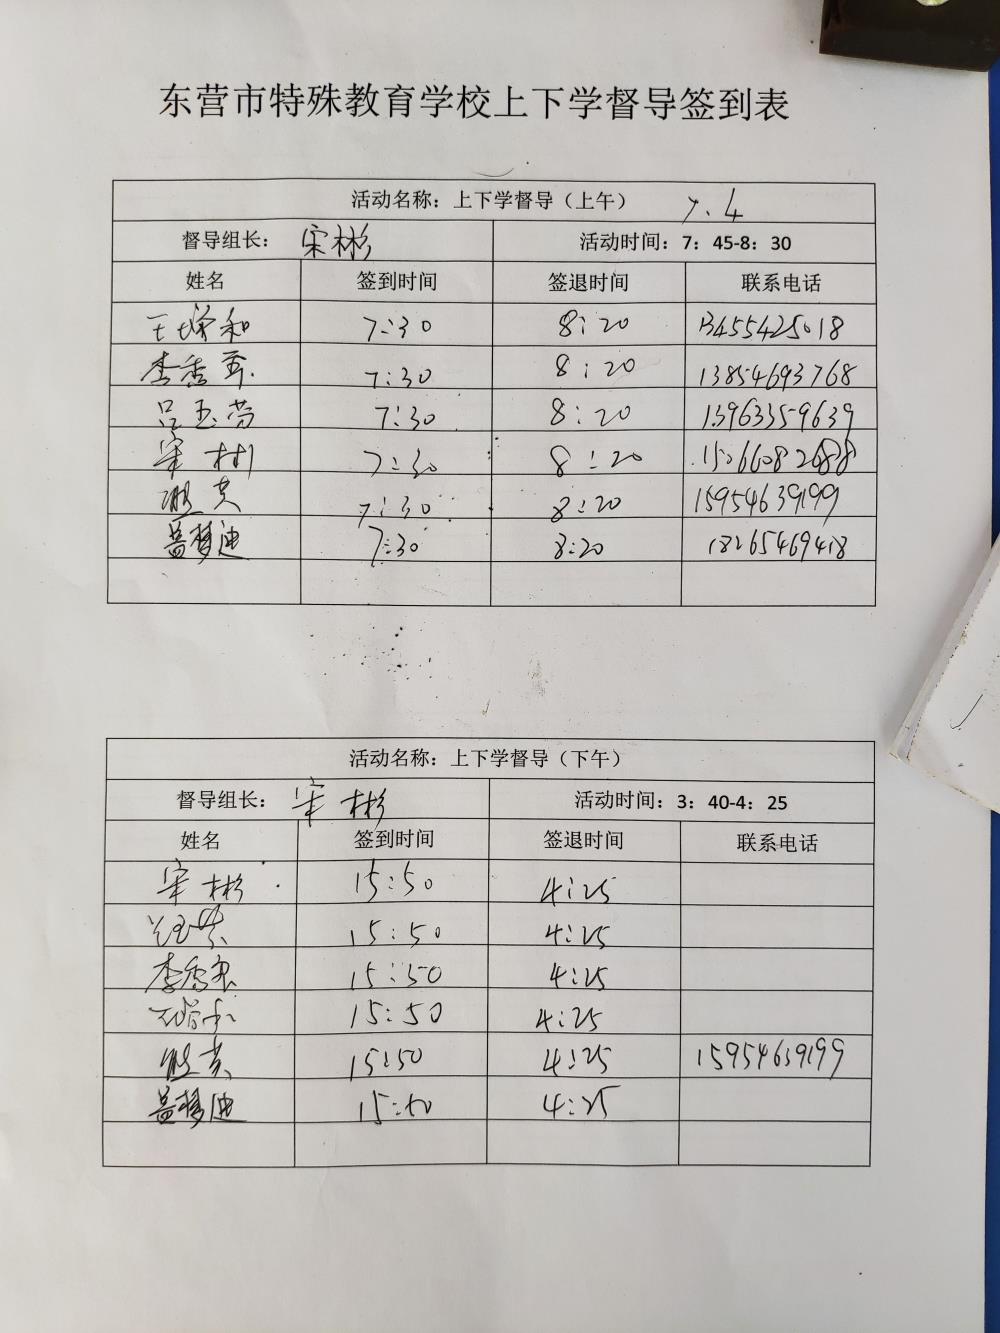 东营市特殊教育学校上下学督导签到表
活动名称：上下学督导（上午） 7.4
督导组长： 宋彬 活动时间：7：45-8：30
姓名 签到时间 签退时间 联系电话
7:30 8:20 13455425018
李秀英 7:30 8:20 13854693768
吕玉芳 7:30 8:20 13963359639
宋彬 7:30 8:20 15066082688
7:30 8:20 15954639199
7:30 8:20 18265469418
活动名称：上下学督导（下午）
督导组长： 宋彬 活动时间：3：40-4：25
姓名 签到时间 签退时间 联系电话
宋彬 15:50 4:25
15:50 4:25
李秀英 15:50 4:25
15:50 4:25
15:50 4:25 15954639199
4:25